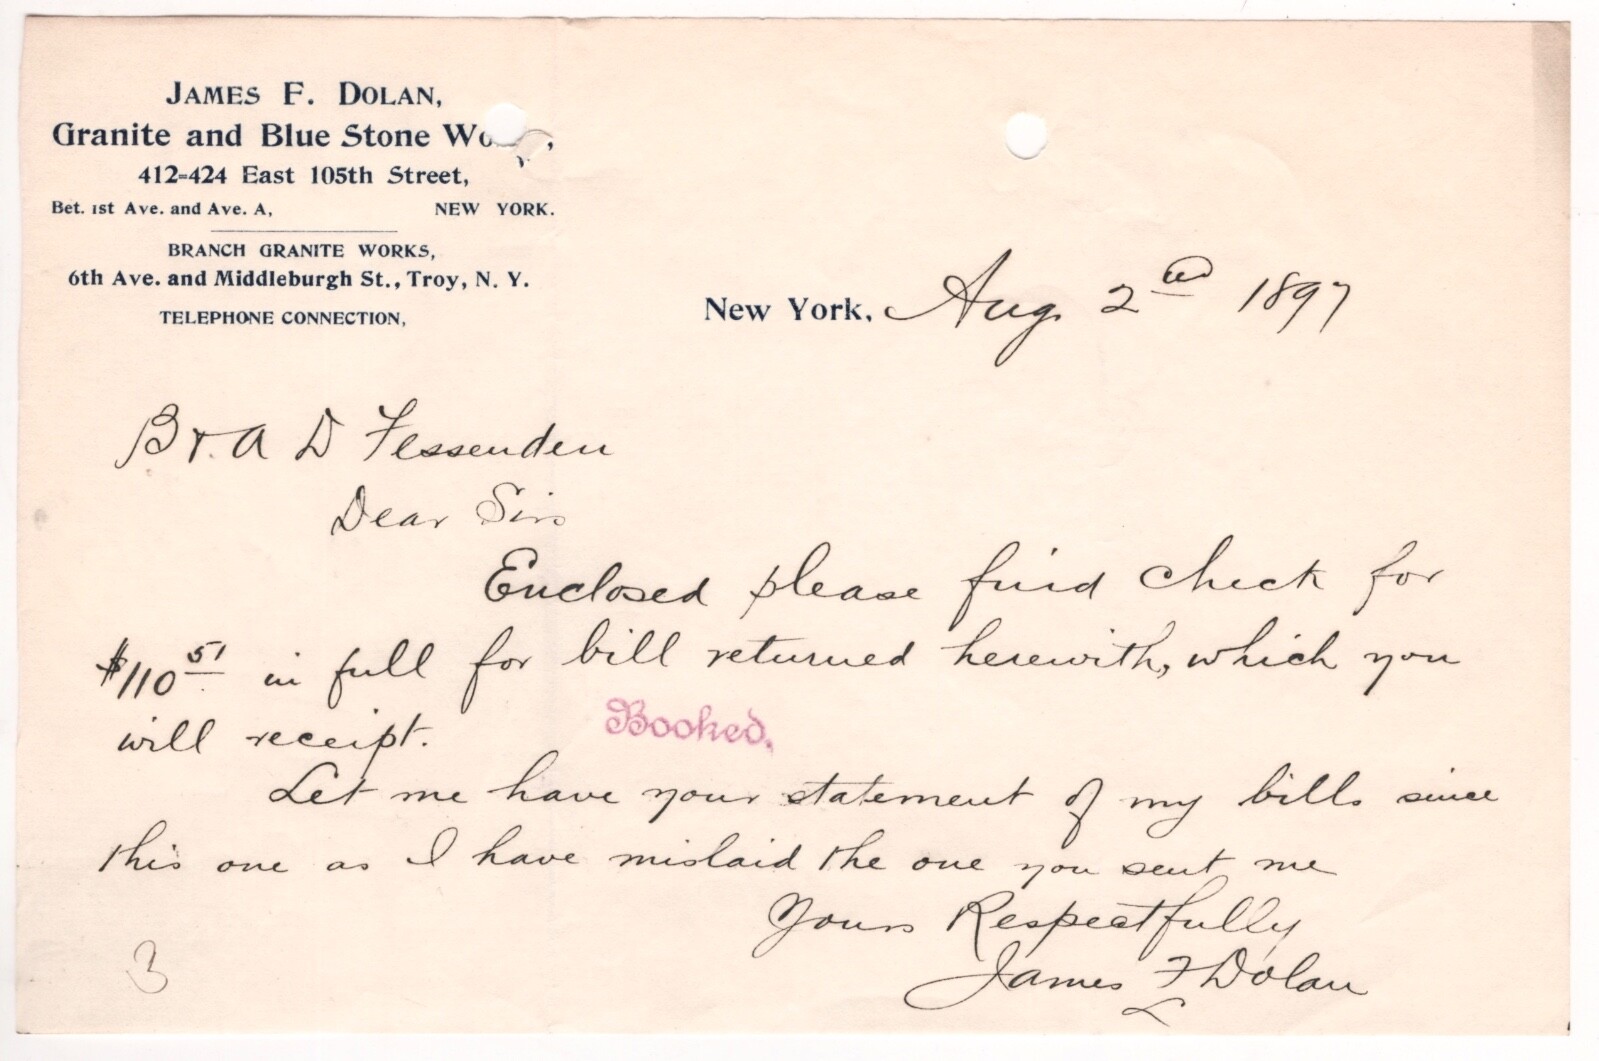 JAMES F. DOLAN,
Granite and Blue Stone Wo
412=424 East 105th Street,
Bet. 1st Ave. and Ave. A, NEW YORK.
BRANCH GRANITE WORKS,
6th Ave. and Middleburgh St., Troy, N. Y.
TELEPHONE CONNECTION,
New York, Aug 2nd 1897
B & A D Fessenden
Dear Sirs
Enclosed please find check for
$110 51 in full for bill returned herewith, which you
will receipt.
Booked.
Let me have your statement of my bills since
this one as I have mislaid the one you sent me
Yours Respectfully
James F Dolan
3